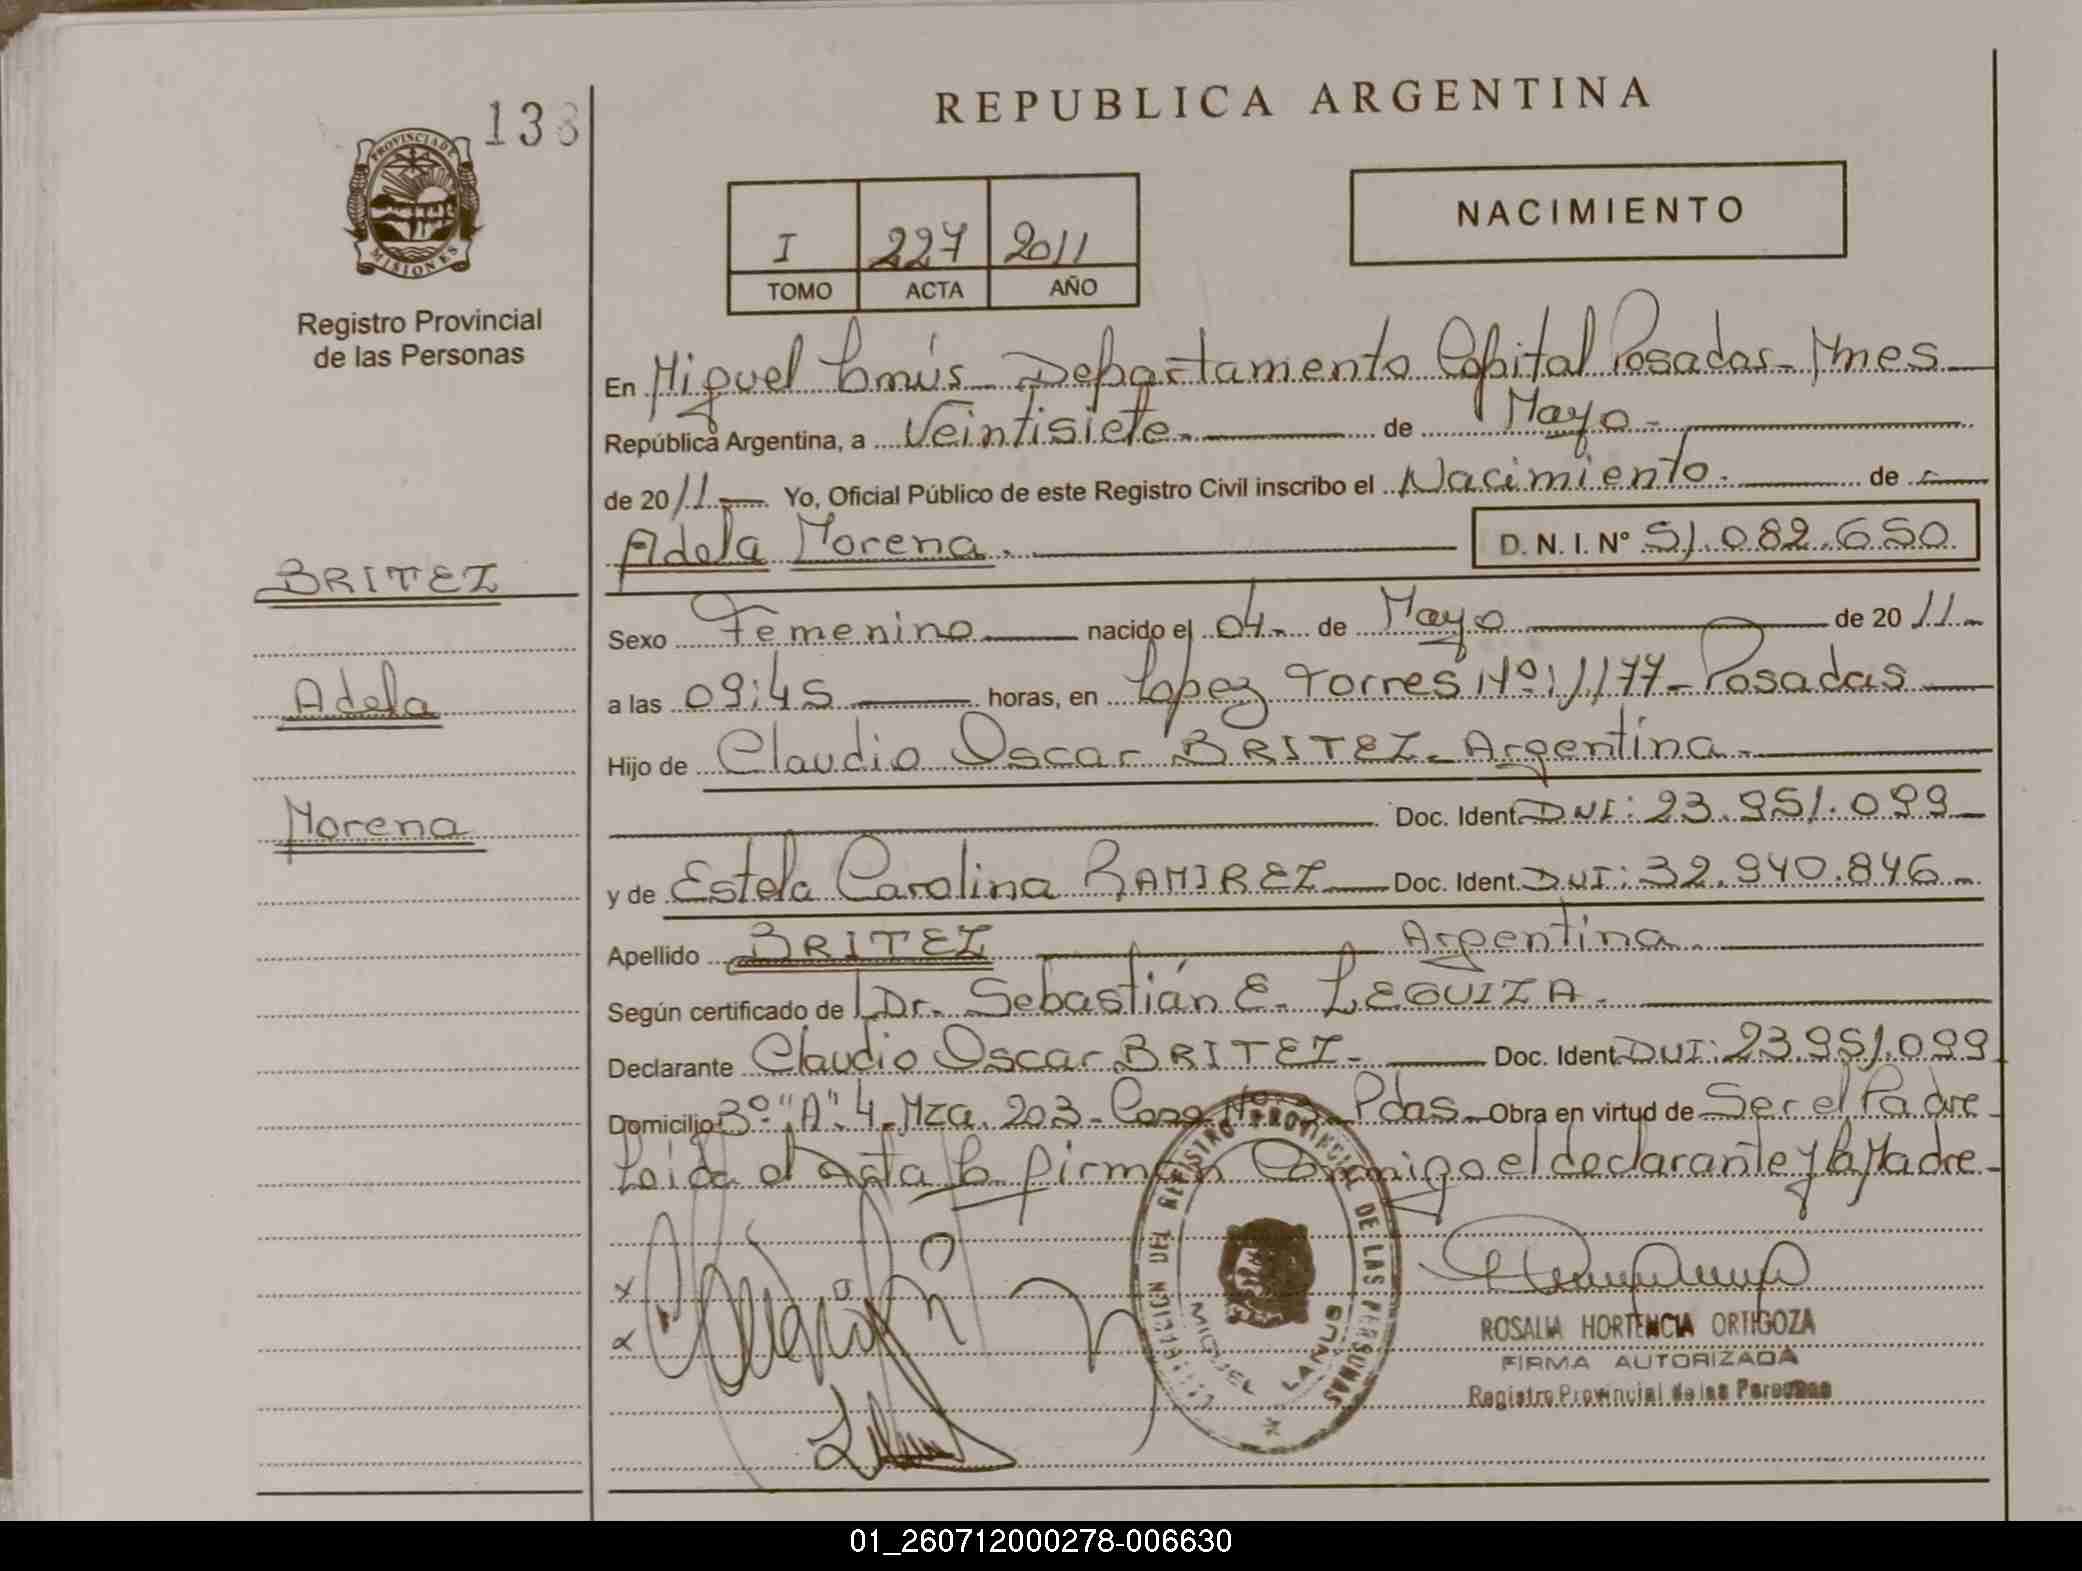 133
REPUBLICA ARGENTINA
PROVINCIA DE
MISIONES
Registro Provincial
de las Personas
I 227 2011
TOMO ACTA AÑO
NACIMIENTO
En Miguel Lanús Departamento Capital Posadas- Mnes
República Argentina, a Veintisiete de Mayo
de 2011 Yo, Oficial Público de este Registro Civil inscribo el Nacimiento de
Adela Morena. D. N. I. N° 51.082.650
BRITEZ
Adela
Morena
Sexo Femenino nacido el 04 de Mayo de 2011
a las 09:45 horas, en Lopez Torres Nº 1177- Posadas
Hijo de Claudio Oscar BRITEZ- Argentina
Doc. Ident. DNI: 23.951.099
y de Estela Carolina RAMIREZ Doc. Ident. DNI: 32.940.846
Apellido BRITEZ Argentina
Según certificado de Dr. Sebastián E. LEGUIZA
Declarante Claudio Oscar BRITEZ Doc. Ident. DNI: 23.951.099
Domicilio 3º "A" 4 Mza. 203- Casa Nº 3- Pdas Obra en virtud de Ser el Padre
Leída el Acta la firman Conmigo el declarante y la Madre
DEL REGISTRO PROVINCIAL DE LAS PERSONAS
MIGUEL LANUS
ROSALIA HORTENCIA ORTIGOZA
FIRMA AUTORIZADA
Registro Provincial de las Personas
01_260712000278-006630